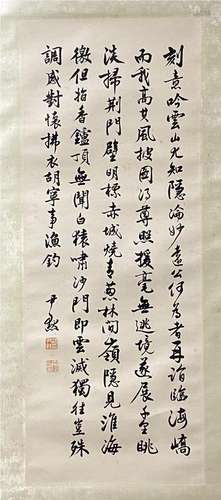 刻意吟雲山尤知隱淪妙遠公何為者再詣臨海嶠
而我高其風披圖得尊照援毫無逃境遂展千里眺
淡掃荆門壁明標赤城燒青蔥林間嶺隱見淮海
徼但指香鑪頂無聞白猿嘯沙門即雲滅獨往豈殊
調感對懷拂衣胡寧事漁釣
尹默